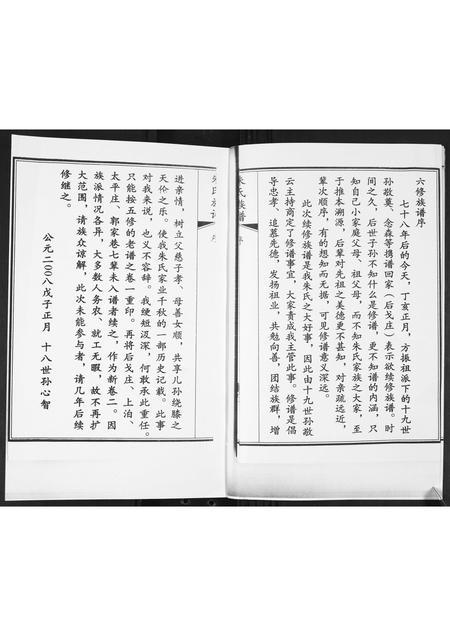 六修族谱序
七十八年后的今天，丁亥正月，方振祖派下的十九世
孙敬奠、念森等携谱回家（后戈庄）表示欲续修族谱。时
间之久、后世子孙不知什么是修谱，更不知谱的内涵，只
知自己小家庭父母、祖父母，而不知朱氏家族之大家，至
于推本溯源，后辈对先祖之美德更不甚知，对亲疏远近，
辈次顺序，有的想知而无据，可见修谱意义深远。
此次续修族谱是我朱氏之大好事，因此由十八世孙敬
云主持商定了修谱事宜，大家责成我主管此事。修谱是倡
导忠孝、追慕先德，发扬祖业，共勉向善，团结族群，增
朱氏族谱
序
朱氏族谱
序
进亲情，树立父慈子孝、母善女顺，共享儿孙绕膝之
天伦之乐。使我朱氏家业千秋的一部历史记载。此事
对我来说，也义不容辞。我绠短汲深，何敢承此重任。
只能按五修的老谱之卷一重印。再将后戈庄、上泊、
太平庄、郭家巷七辈未入谱者续之，作为新卷二。因
族派情况各异，大多数人务农、就工无暇，故不再扩
大范围，请族众谅解，此次未能参与者，请几年后续
修继之。
公元二〇〇八戊子正月 十八世孙心智